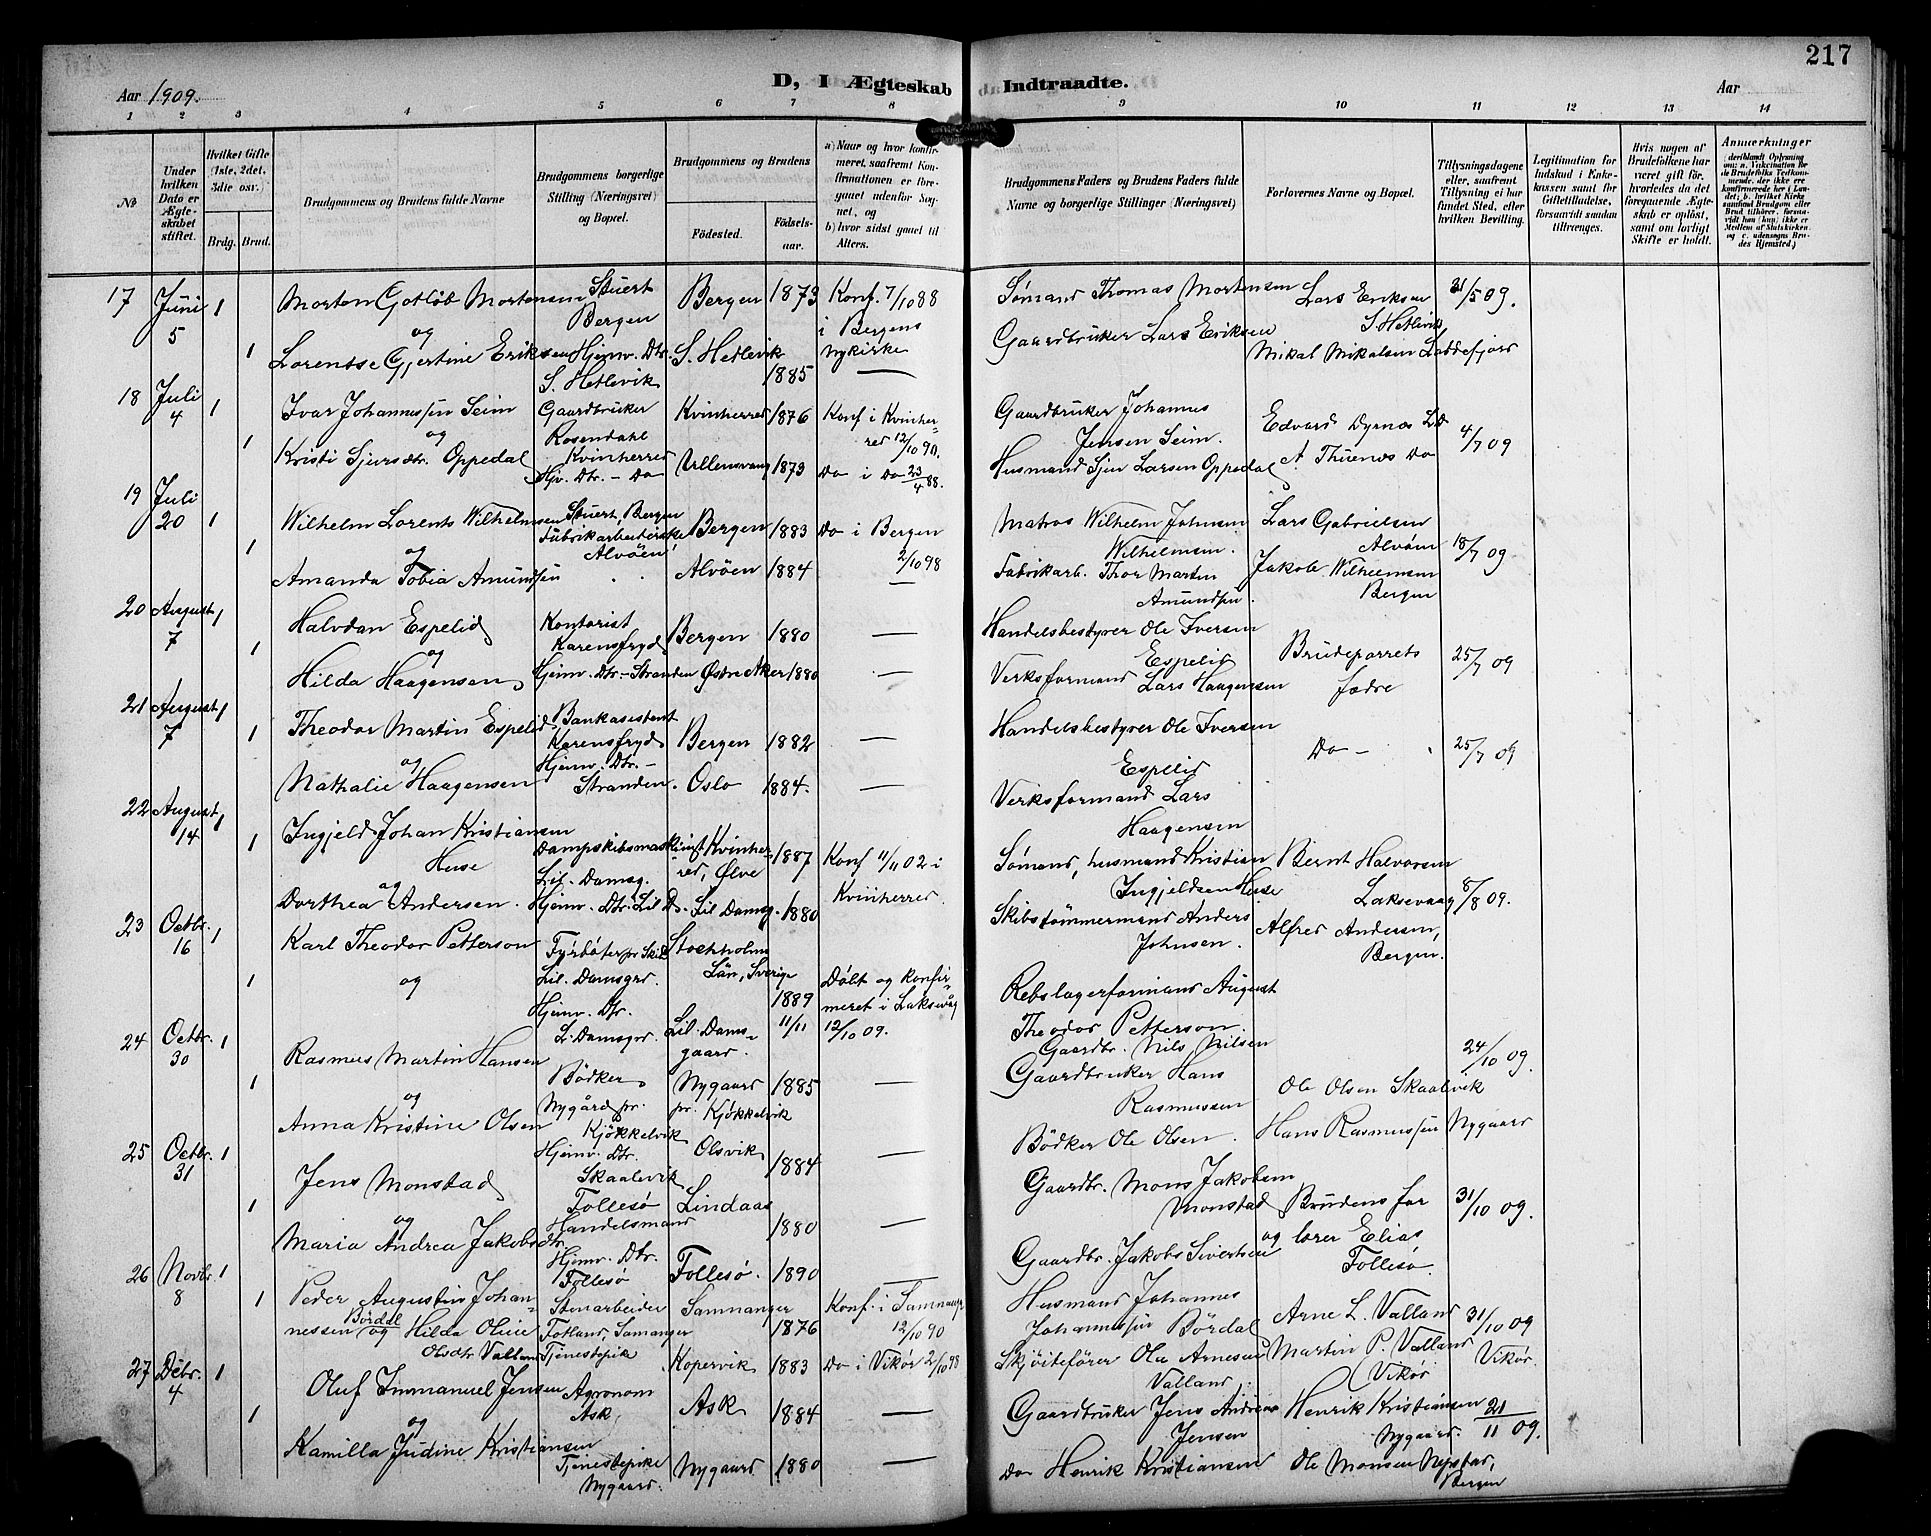 217
Aar 1909.
D, I Ægteskab Indtraadte.
Aar
1 2 3 4 5 6 7 8 9 10 11 12 13 14
№
Under hvilken Dato er Ægteskabet stiftet.
Hvilket Gifte (1ste, 2det, 3die osv.)
Brdg. Brud.
Brudgommens og Brudens fulde Navne
Brudgommens borgerlige Stilling (Næringsvei) og Bopæl.
Brudgommens og Brudens
Fødested.
Fødselsaar.
a) Naar og hvor konfirmeret, saafremt Konfirmationen er foregaaet udenfor Sognet, og b) hvor sidst gaaet til Alters.
Brudgommens Faders og Brudens Faders fulde Navne og borgerlige Stillinger (Næringsvei)
Forlovernes Navne og Bopæl.
Tillysningsdagene eller, saafremt Tillysning ei har fundet Sted, efter hvilken Bevilling.
Legitimation for Indskud i Enkekassen samt for Giftetilladelse, forsaavidt saadan tiltrænges.
Hvis nogen af Brudefolkene har været gift før, hvorledes da det foregaaende Ægteskab er opløst, samt om lovligt Skifte er holdt.
Anmærkninger
17 Juni 5 1 Morten Gotlob Mortensen Stuert Bergen Bergen 1873 Konf. 7/10 88 i Bergens Nykirke Sømand Thomas Mortensen Lars Eriksen S. Hetlevik 31/5 09.
og
1 Lorentse Gjertine Eriksen Hjemv. Dtr. S. Hetlevik S. Hetlevik 1885 — Gaardbruker Lars Eriksen Mikal Mikalsen Loddefjord
18 Juli 4 1 Ivar Johannessen Seim Gaardbruker Rosendahl Kvinherred Kvinherred 1876 Konf i Kvinherred 12/10 90. Gaardbruker Johannes Jensen Seim. Edvard Dyrnes LD 4/7 09
og
1 Kristi Sjursdtr. Oppedal Hjv. Dtr. - Do Ullensvang 1873 Do i Do 23/4 88. Husmand Sjur Larsen Oppedal A Thuenes Do
19 Juli 20 1 Wilhelm Lorents Wilhelmsen Stuert, Bergen Bergen 1883 Do i Bergen 2/10 98 Matros Wilhelm Johnsen Wilhelmsen. Lars Gabrielsen Alvøen 18/7 09
og
1 Amanda Tobia Amundsen Fabrikarbeiderske Alvöen Alvöen 1884 — Fabrikarb. Thor Martin Amundsen. Jakob Wilhelmsen Bergen
20 August 7 1 Halvdan Espelid Kontorist Karensfryd Bergen 1880 — Handelsbestyrer Ole Iversen Espelid Brudeparrets fædre 25/7 09
og
1 Hilda Haagensen Hjemv. Dtr. - Stranden Østre Aker 1880 — Verksformand Lars Haagensen
21 August 7 1 Theodor Martin Espelid Bankasistent Karensfryd Bergen 1882 — Handelsbestyrer Ole Iversen Espelid Do - 25/7 09
og
1 Nathalie Haagensen Hjemv. Dtr. - Stranden. Oslo 1884. — Verksformand Lars Haagensen
22 August 14 1 Ingjeld Johan Kristiansen Huse Dampskibsmaskinist Lil. Damsg. Kvinherred, Ølve 1887 Konf 11/11 02 i Kvinherred. Sømand, husmand Kristian Ingjeldsen Huse Bernt Halvorsen Laksevaag 8/8 09.
og
1 Dorthea Andersen. Hjemv. Dtr. Lil D. Lil Damsg. 1880 Skibstømmermand Anders Johnsen. Alfred Andersen, Bergen.
23 Octbr. 16 1 Karl Theodor Petterson Fyrbøter pr Skib Lil. Damsgrd. Stockholms Län, Sverige 1889 11/11 Døbt og konfirmeret i Laksevåg 12/10 09. Rebslagerformand August Theodor Petterson.
1 og Hjemv. Dtr. L. Damsgrd. Lil. Damsgaard. Gaardbr. Nils Nilsen
24 Octbr. 30 1 Rasmus Martin Hansen Bödker Nygård pr. Kjøkkelvik Nygaard pr. Kjøkkelvik 1885 — Gaardbruker Hans Rasmussen Ole Olsen Skaalevik 24/10 09.
og
1 Anna Kristine Olsen Hjemv. Dtr. Skaalevik Olsvik 1884 — Bödker Ole Olsen. Hans Rasmussen Nygaard
25 Octbr. 31 1 Jens Monstad Follesø Handelsmand Lindaas 1880 — Gaardbr. Mons Jakobsen Monstad Brudens far og lærer Elias Follesø. 31/10 09.
og
1 Maria Andrea Jakobsdtr. Hjemv. Dtr. Follesø Follesø. 1890 — Gaardbr. Jakob Sivertsen
26 Novbr. 8 1 Peder Augustin Johannessen Børdal Stenarbeider Totland, Samanger Samnanger 1876 Konf. i Samnanger 12/10 90 Husmand Johannes Johannessen Børdal Arne L. Valland 31/10 09 Vikør.
1 og Hilda Oline Olsdtr Valland Tjenestepike Kopervik 1883 Do i Vikør 2/10 98 Skjøitefører Ola Arnesen Valland. Martin P. Valland Vikør
27 Debr. 4 1 Oluf Immanuel Jensen Agronom Ask Ask 1884 — Gaardbruker Jens Andreas Jensen Henrik Kristiansen Nygaard. 21/11 09.
og
1 Kamilla Judine Kristiansen Tjenestepike Nygaard. Nygaard 1880 — Do Henrik Kristiansen Ole Monsen Nepstad, Bergen